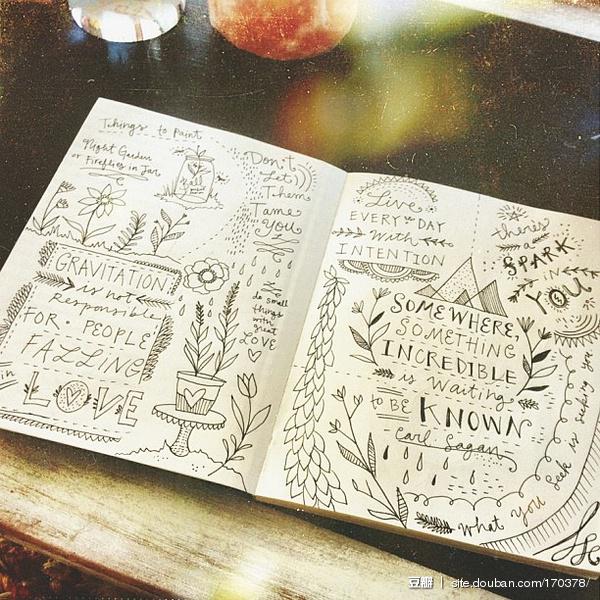 Things to paint
Night Garden
or Fireflies in Jar
Don't
Let
Them
Tame
you
do small
things
with
great
LOVE
GRAVITATION
is not
responsible
FOR · PEOPLE
FALLING
in
LOVE
Live
EVERY DAY
with
INTENTION
there's
a
SPARK
IN
YOU
SOMEWHERE,
SOMETHING
INCREDIBLE
is waiting
to BE KNOWN
Carl Sagan
what you seek is seeking you
豆瓣 | site.douban.com/170378/